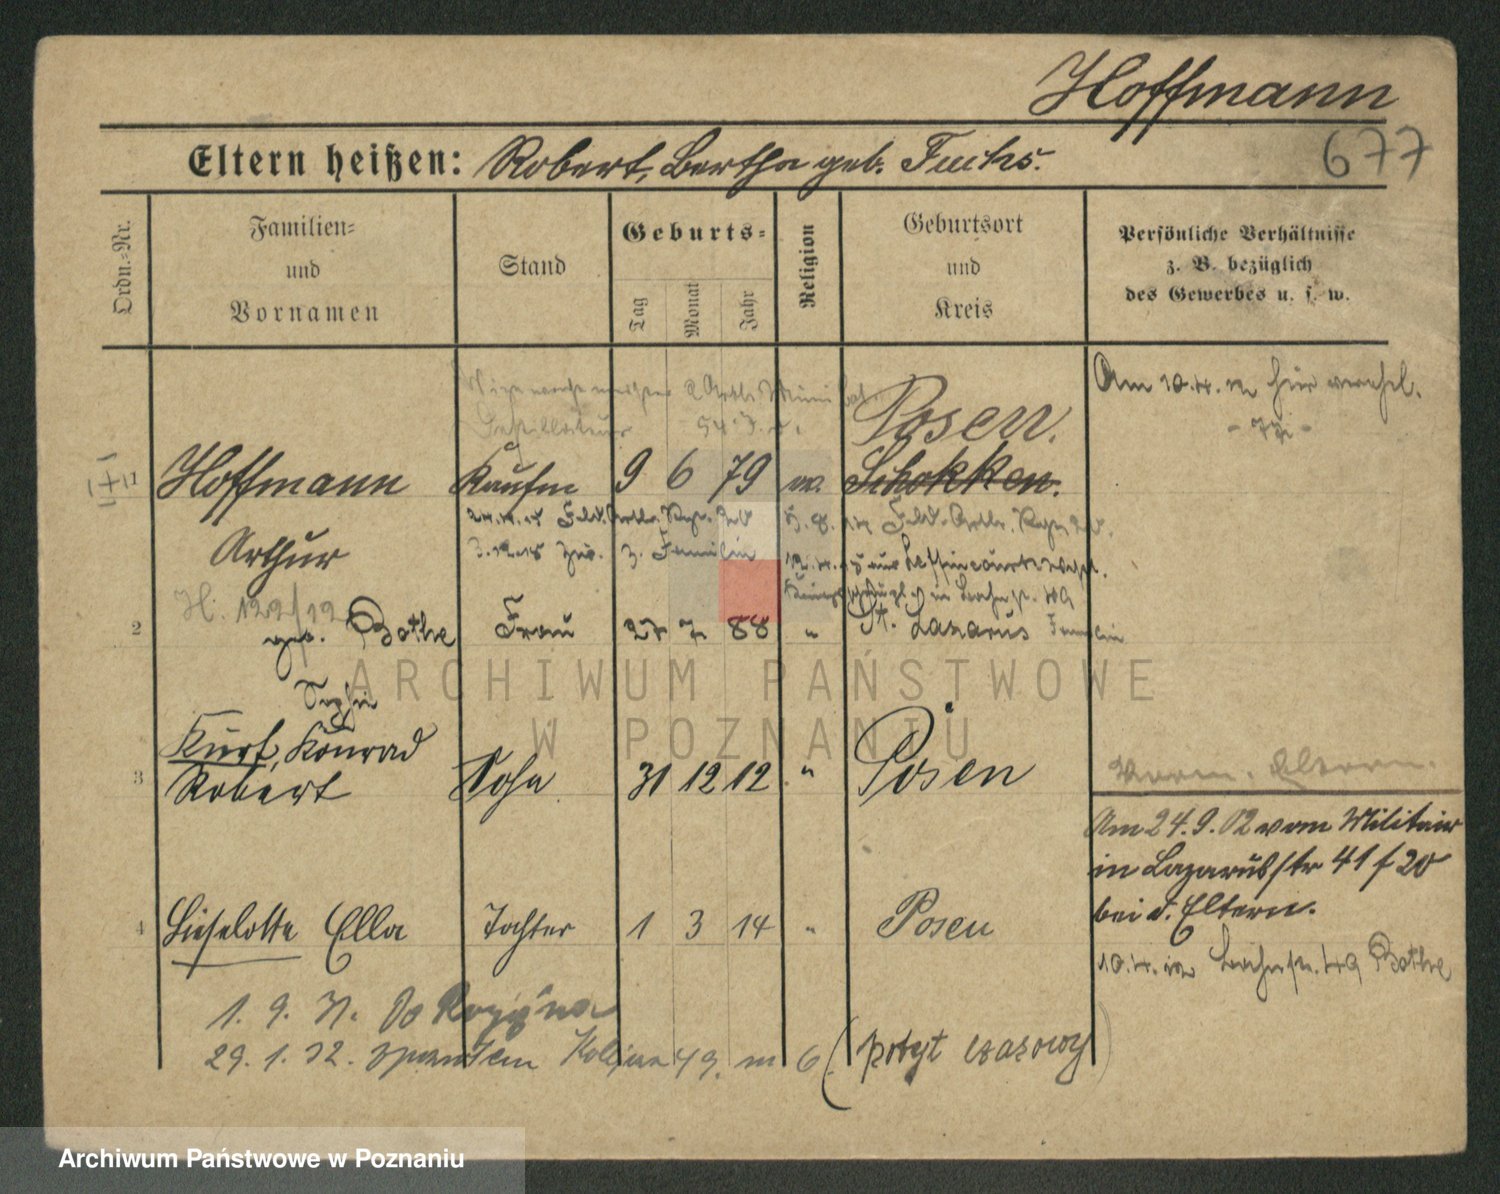 Hoffmann
677
Eltern heißen: Robert, Bertha geb. Fuchs.
Ordn.-Nr.
Familien-
und
Vornamen
Stand
Geburts-
Tag
Monat
Jahr
Religion
Geburtsort
und
Kreis
Persönliche Verhältnisse
z. B. bezüglich
des Gewerbes u. s. w.
Am 10.4.12 hier verehel.
Posen.
1 Hoffmann Kaufm 9 6 79 Schokken.
Arthur
H. 122/12
2 geb. Bothe Frau 27 7 88 " St. Lazarus
Sophie
Kurt, Konrad
3 Robert Sohn 31 12 12 " Posen
Vorm. Eltern.
Am 24.9.02 vom Militair
in Lazarusstr 41 f 20
bei d. Eltern.
4 Lieselotte Ella Tochter 1 3 14 " Posen
10.4.12 Bahnstr. 49 Bothe
1. 9. 31. do
29. 1. 32. 49. m 6 (pobyt czasowy)
ARCHIWUM PAŃSTWOWE
W POZNANIU
Archiwum Państwowe w Poznaniu